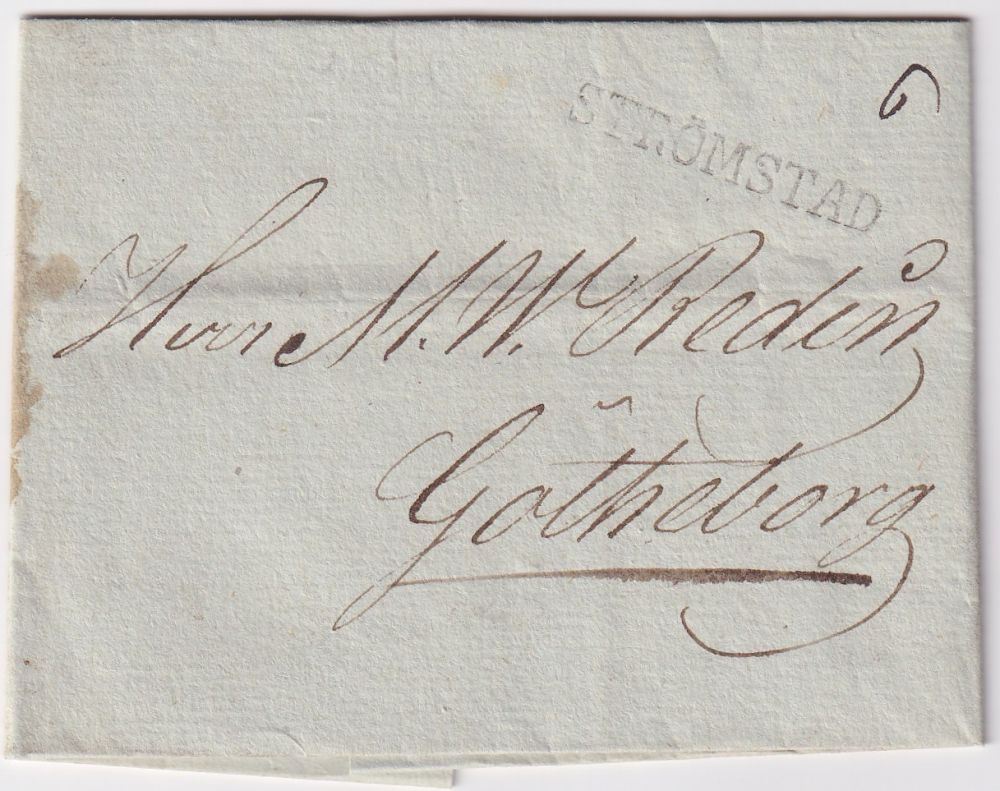 6
STRÖMSTAD
Herr M. W. Redin
Götheborg